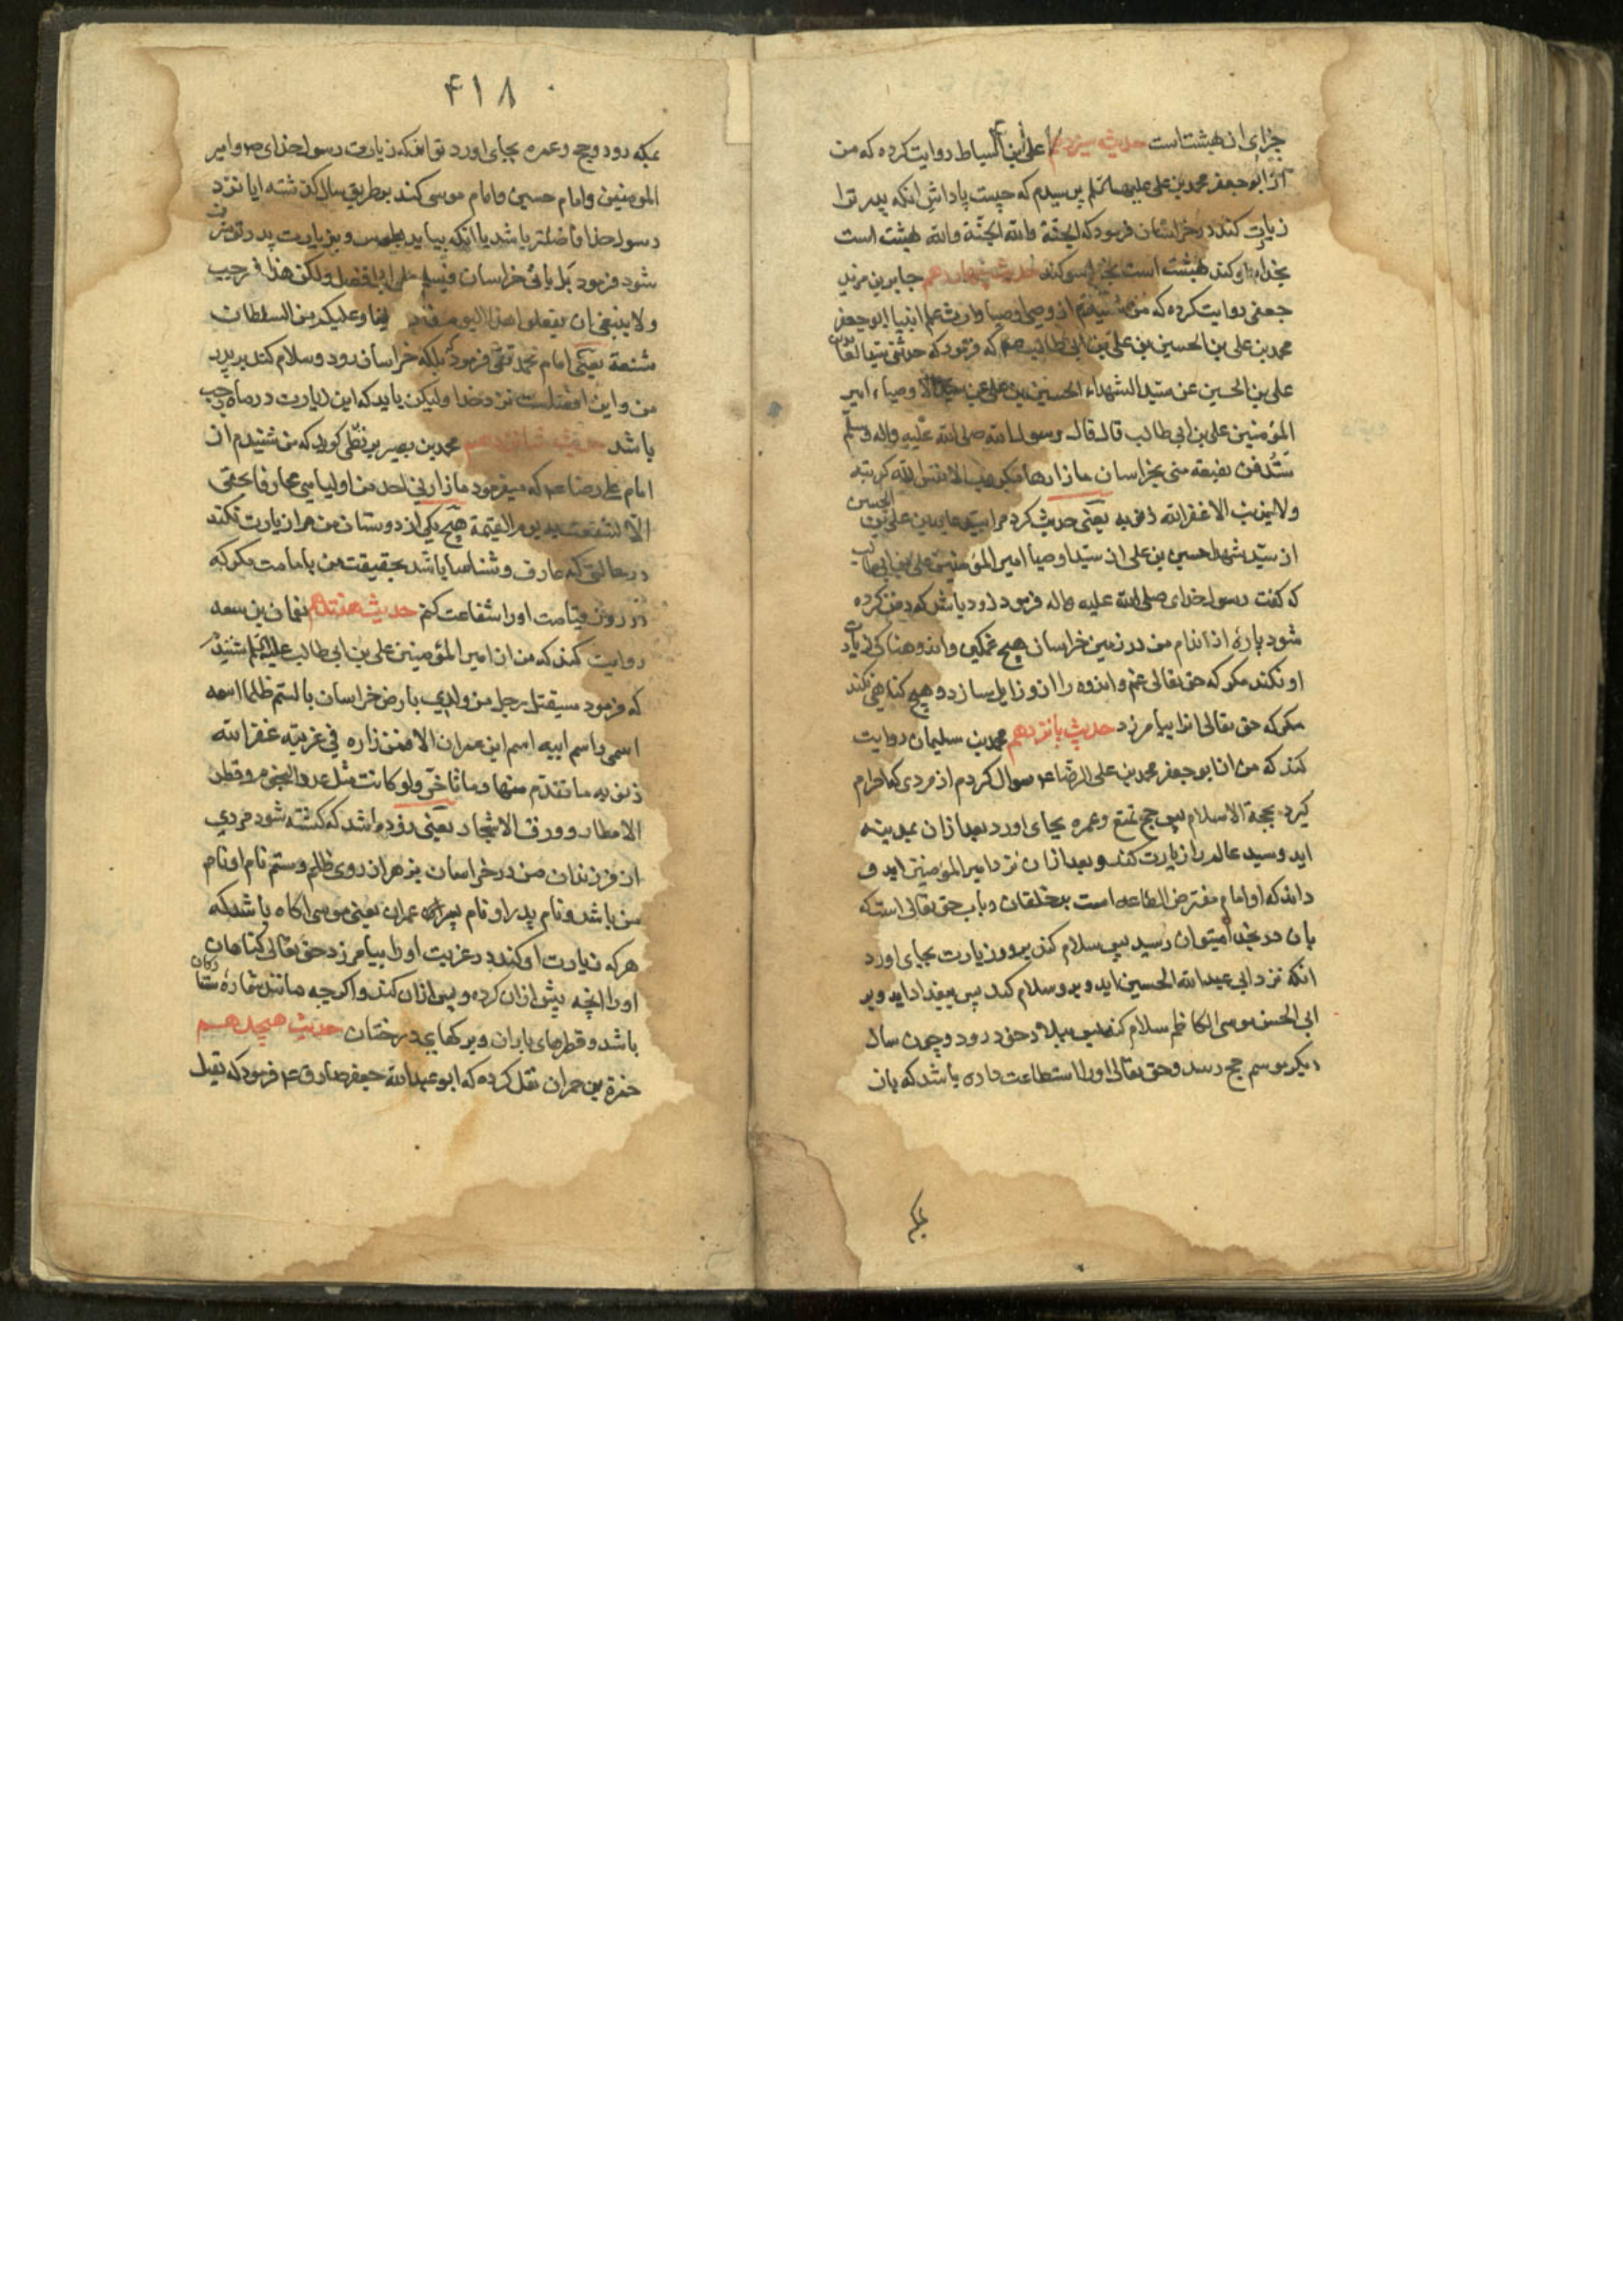 جزای ان بهشت است حدیث سیزدهم علی ابن اسباط روایت کرده که من
از ابو جعفر محمد بن علی علیهما سلم پرسیدم که چیست پاداش انکه پدر ترا
زیارت کند در خراسان فرمود که الجنة والله الجنة والله بهشت است
بخدا سوکند بهشت است بخدا سوکند حدیث چهاردهم جابر بن یزید
جعفی روایت کرده که من شنیدم از وصی اوصیا وارث علم انبیا ابو جعفر
محمد بن علی بن الحسین بن علی بن ابی طالب که فرمود که حدثنی سید العابدین
علی بن الحسین عن سید الشهداء الحسین بن علی عن سید الاوصیاء امیر
المؤمنین علی بن ابی طالب قال قال رسول الله صلی الله علیه واله وسلم
ستدفن بضعة منی بخراسان ما زارها مکروب الا نفس الله کربته
ولا مذنب الا غفر الله ذنبه یعنی حدیث کرد مرا سید عابدین علی بن الحسین
از سید شهدا حسین بن علی از سید اوصیا امیر المؤمنین علی بن ابی طالب
که کفت رسول خدای صلی الله علیه واله فرمود زود باشد که دفن کرده
شود پارهٔ از اندام من در زمین خراسان هیچ غمکین واندوهناکی زیارت
او نکند مکر که حق تعالی غم واندوه را ازو زایل سازد و هیچ کناهی نکند
مکر که حق تعالی انرا بیامرزد حدیث پانزدهم محمد بن سلیمان روایت
کند که من از ابو جعفر محمد بن علی الرضا ع سوال کردم از مردی که احرام
کیرد بحجة الاسلام پس حج تمتع وعمره بجای اورد بعد از ان بمدینه
اید وسید عالم را زیارت کند وبعد از ان نزد امیر المؤمنین اید و
داند که او امام مفترض الطاعه است بر خلقان وباب حق تعالی است که
بان در بخدا میتوان رسید پس سلام کند برو وزیارت بجای اورد
انکه نزد ابی عبد الله الحسین اید وبرو سلام کند پس ببغداد اید وبر
ابی الحسن موسی الکاظم سلام کند پس ببلاد خود رود وچون سال
دیکر موسم حج رسد وحق تعالی اورا استطاعت داده باشد که بان
بمکه
۴۱۸
بمکه رود وحج وعمره بجای اورد تواند که زیارت رسول خدای ص وامیر
المومنین وامام حسین وامام موسی کند بر طریق سال کذشته ایا نزد
رسول خدا فاضلتر باشد یا انکه بیاید بطوس وبزیارت پدر تو مشرف
شود فرمود بل یاتی خراسان فیسلم علی ابی افضل ولکن هذا فی رجب
ولا ینبغی ان یفعلوا هذا الیوم فان علینا وعلیکم من السلطان
شنعة یعنی امام محمد تقی فرمود بلکه خراسان رود وسلام کند بر پدر
من واین افضلست نزد خدا ولیکن باید که این زیارت در ماه رجب
باشد حدیث شانزدهم محمد بن بصیر بزنطی کوید که من شنیدم از
امام علی رضا ع که میفرمود ما زارنی احد من اولیایی عارفا بحقی
الا تشفعت فیه یوم القیمة هیچ یکی از دوستان من مرا زیارت نکند
در حالتی که عارف وشناسا باشد بحقیقت من بامامت مکر که
در روز قیامت اورا شفاعت کنم حدیث هفتدهم نعمان بن سعد
روایت کند که من از امیر المؤمنین علی بن ابی طالب علیه السلم شنیدم
که فرمود سیقتل رجل من ولدی بارض خراسان بالسم ظلما اسمه
اسمی واسم ابیه اسم ابن عمران الا فمن زاره فی غربته غفر الله
ذنوبه ما تقدم منها وما تاخر ولو کانت مثل عدد النجوم وقطر
الامطار وورق الاشجار یعنی زود باشد که کشته شود مردی
از فرزندان من در خراسان بزهر از روی ظلم وستم نام او نام
من باشد ونام پدر او نام پسر عمران یعنی موسی اکاه باشد که
هر که زیارت او کند در غربت اورا بیامرزد حق تعالی کناهان
اورا انچه پیش ازان کرده وپس ازان کند واکرچه مانند شمارهٔ ستارکان
باشد وقطرهای باران وبرکهای درختان حدیث هیجدهم
حمزة بن حمران نقل کرده که ابو عبد الله جعفر صادق ع فرمود که یقتل